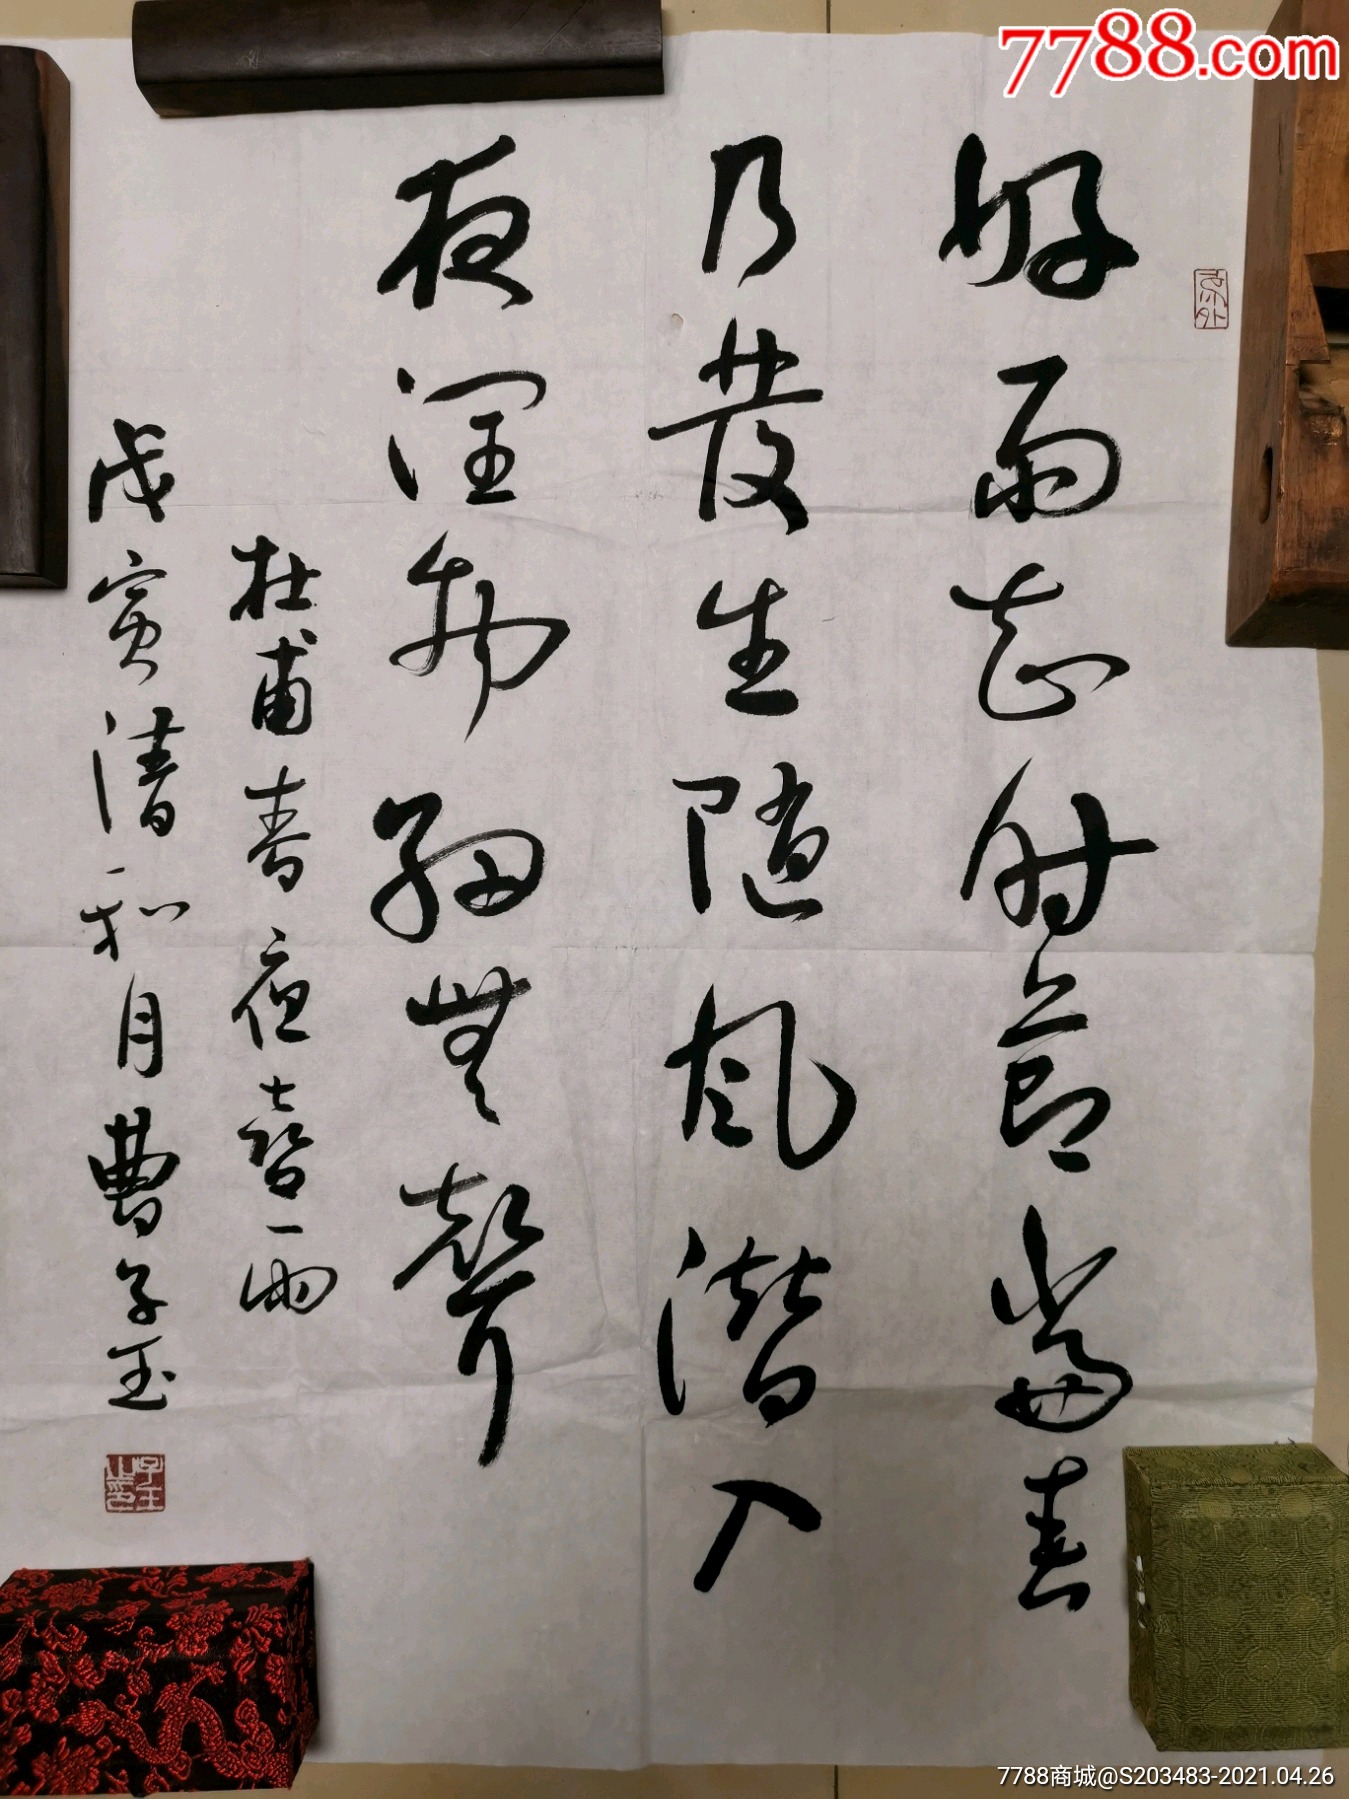 7788.com
好雨知时節當春
乃發生随風潜入
夜潤物細無聲
杜甫春夜喜雨
戊寅清和月曹子玉
7788商城@S203483-2021.04.26